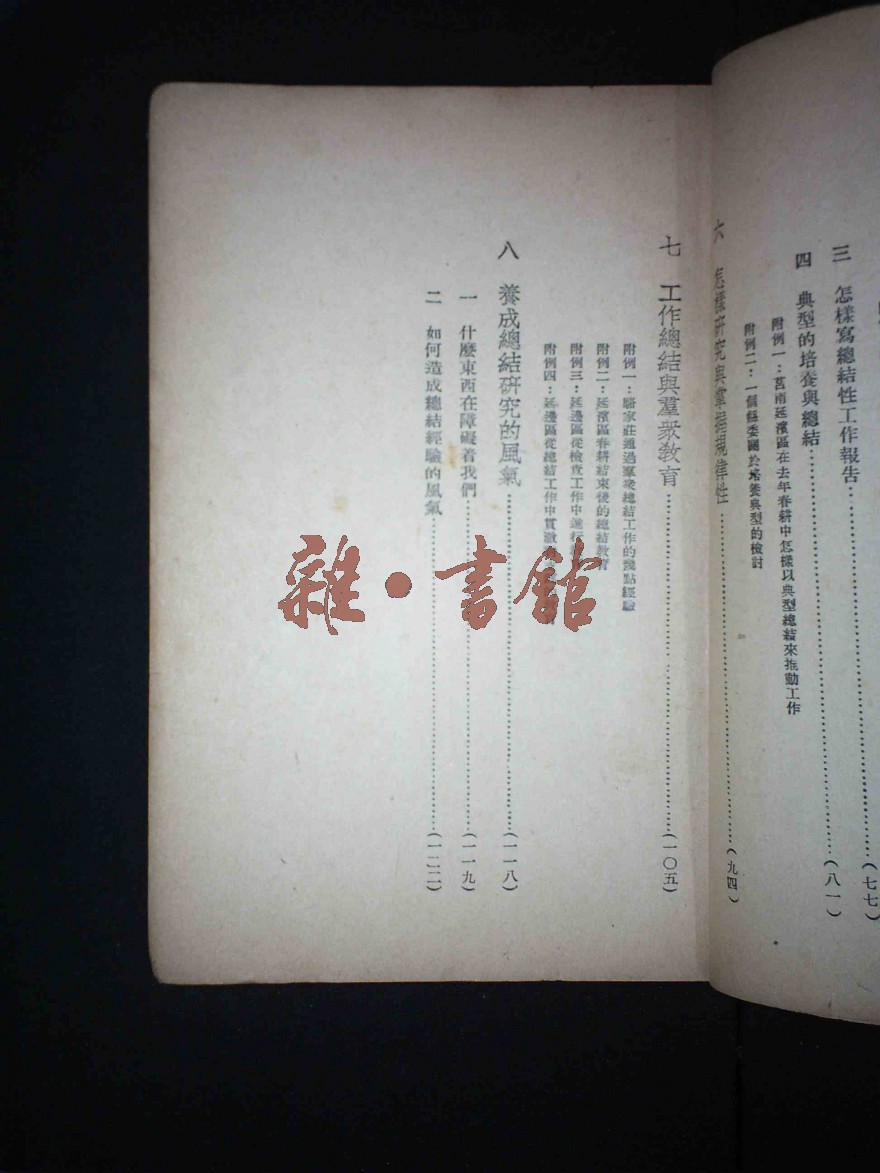 三 怎樣寫總結性工作報告……(七七)
四 典型的培養與總結……(八一)
附例一：莒南延濱區在去年春耕中怎樣以典型總結來推動工作
附例二：一個縣委關於培養典型的檢討
六 怎樣研究與掌握規律性……(九四)
七 工作總結與羣衆教育……(一〇五)
附例一：駱家莊通過羣衆總結工作的幾點經驗
附例二：延濱區春耕結束後的總結教育
附例三：延邊區從檢查工作中進行
附例四：延邊區從總結工作中貫徹
八 養成總結研究的風氣……(一一八)
一 什麼東西在障礙着我們……(一一九)
二 如何造成總結經驗的風氣……(一二二)
雜·書館